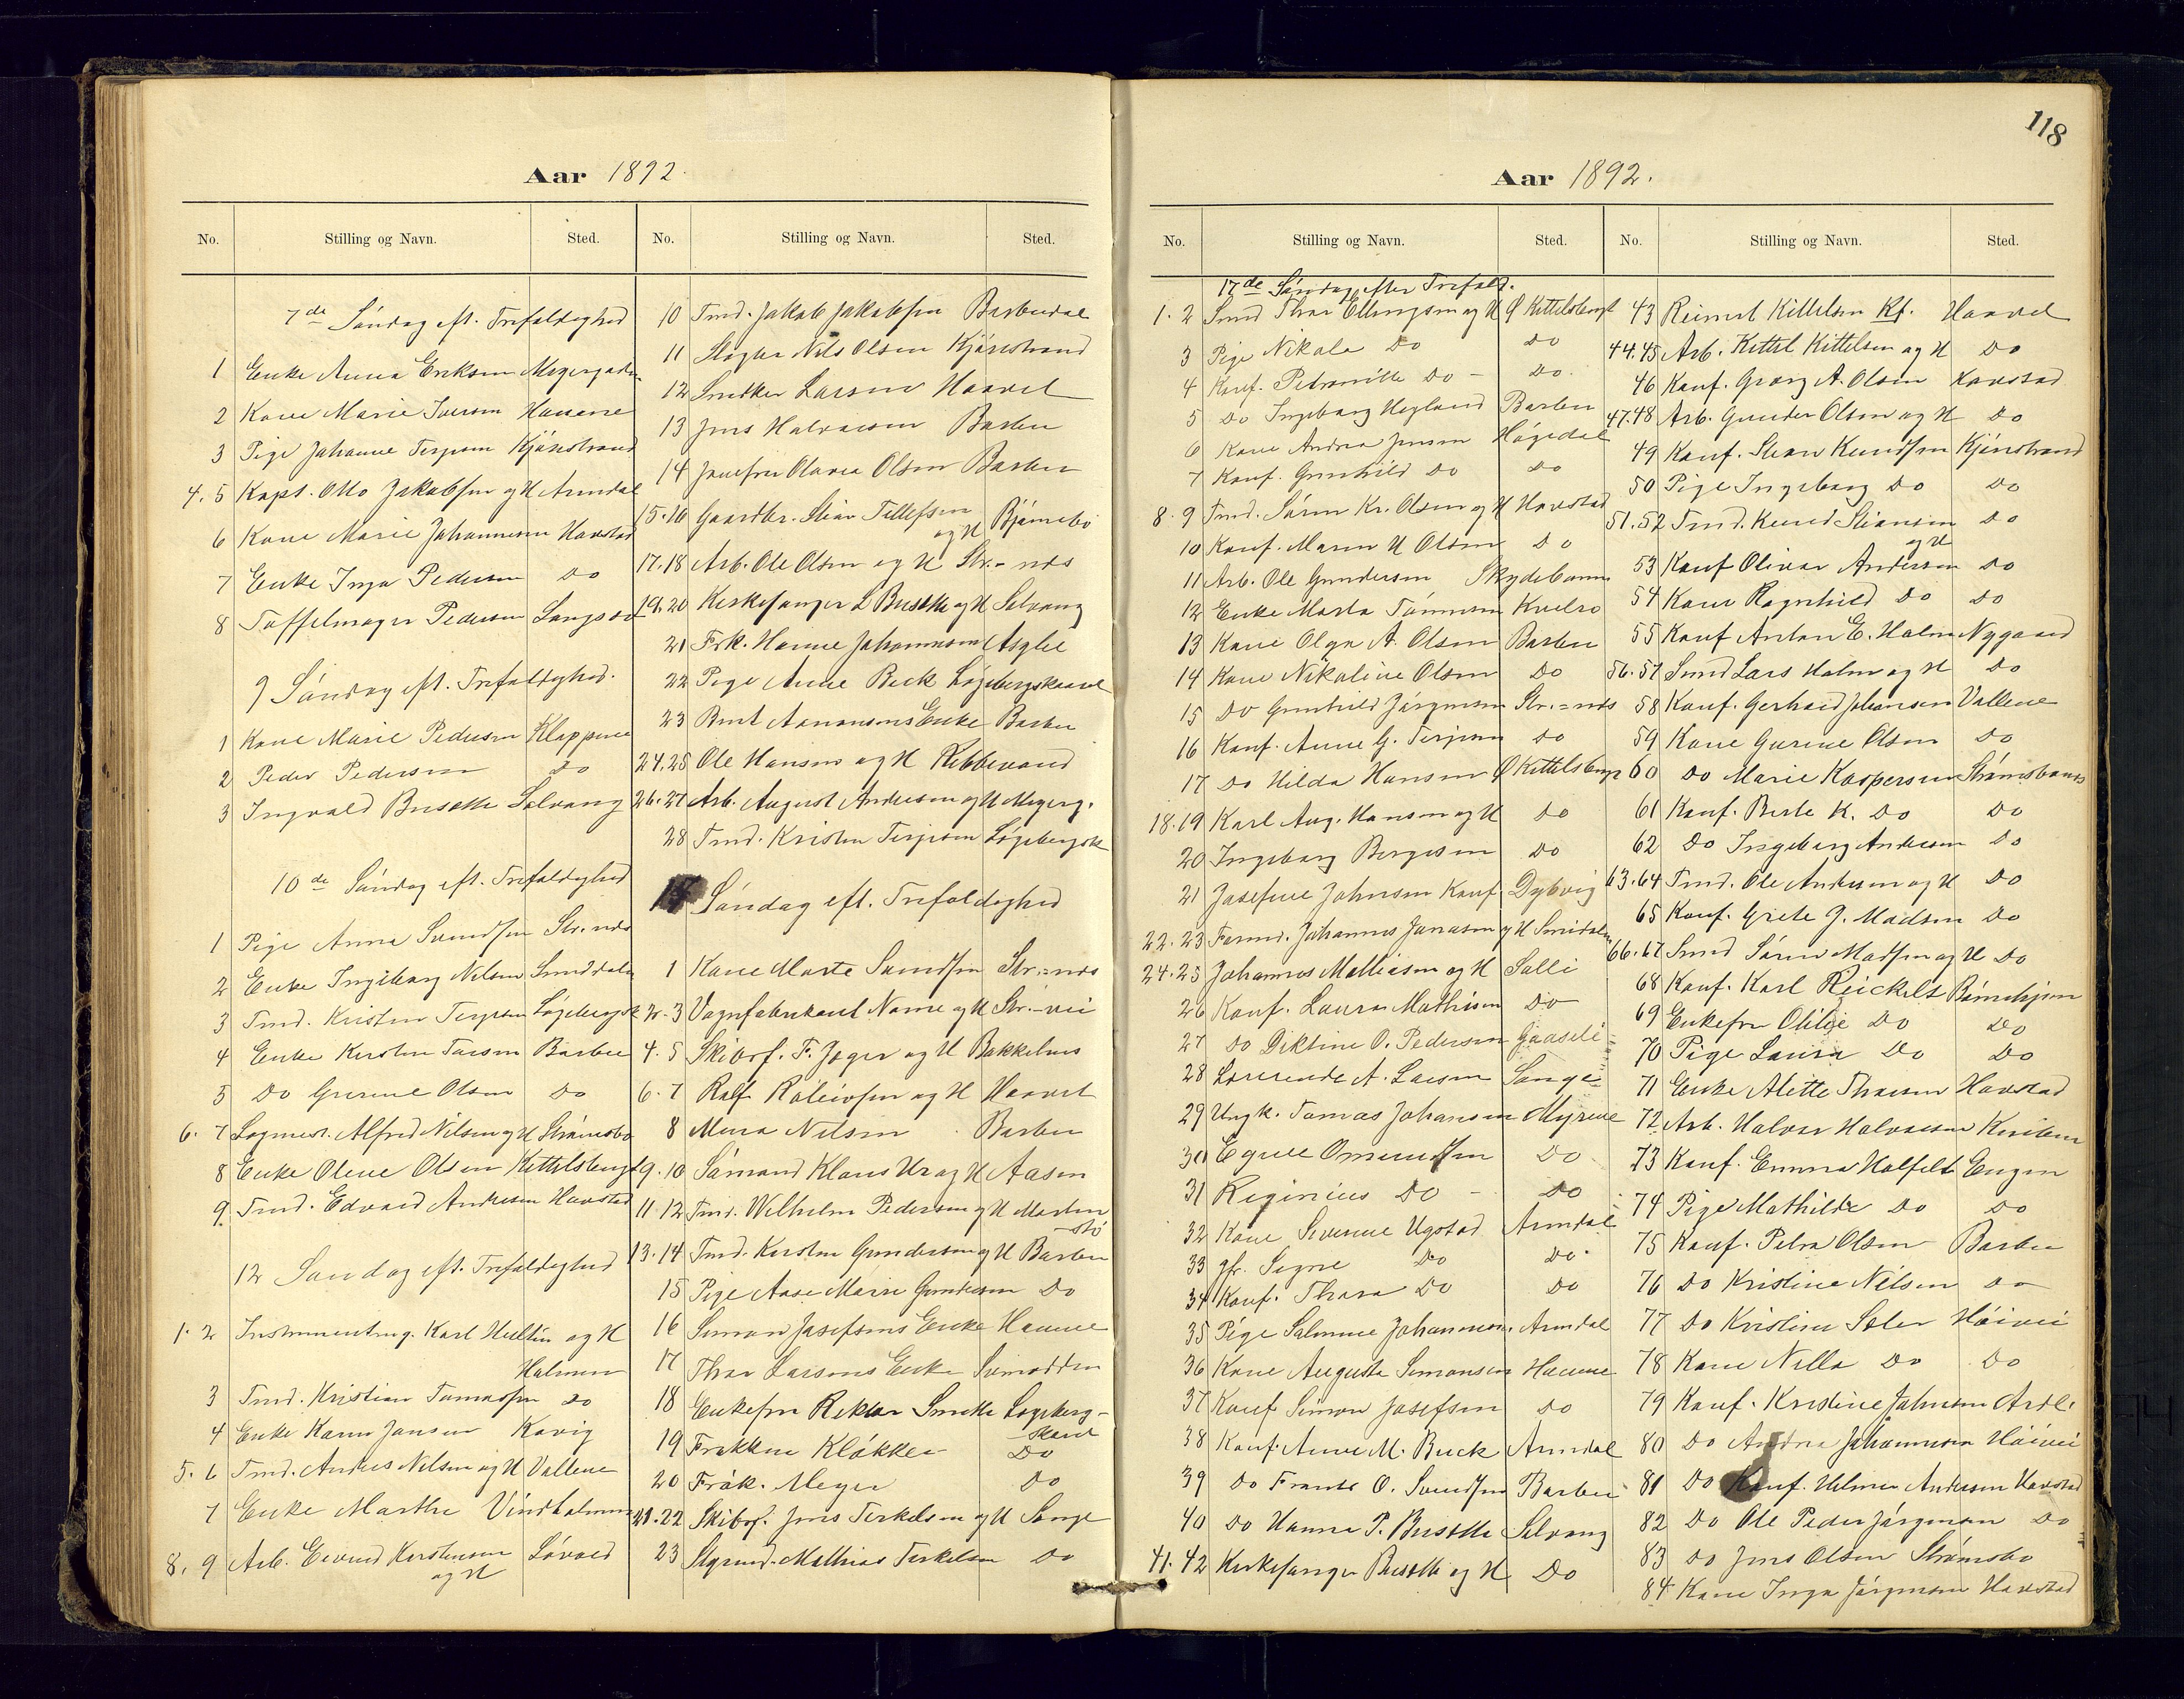 118
Aar 1892.
No. Stilling og Navn. Sted. No. Stilling og Navn. Sted.
7de Søndag eft. Trefoldighed
1 Enke Anna Eriksen
2 Kone Marie Iversen Hauene
3 Pige Johanne Terjesen Kjønstrand
4. 5 Kapt. Otto Jakobsen og H Arendal
6 Kone Marie Johannesen Havstad
7 Enke Inga Pedersen Do
8 Toffelmager Pedersen Langsæ
9 Søndag eft. Trefoldighed.
1 Kone Marie Pedersen Klappene
2 Peder Pedersen Do
3 Ingvald Busette Solvang
10de Søndag eft. Trefoldighed
1 Pige Anna Svendsen Str.nds
2 Enke Ingeborg Nilsen Smeddalen
3 Tmd. Kristen Terjesen Løgebergsk
4 Enke Kirsten Taraldsen Barbu
5 Do Gurine Olsen Do
6. 7 Logmest. Alfred Nilsen og H Strømsbo
8 Enke Olene Olsen Kittelsbugt
9. Tmd. Edvard Andersen Havstad
12 Søndag eft. Trefoldighed
1. 2 Instrumentmg. Karl Hultin og H
Holmen
3 Tmd. Kristian Tomassen Do
4 Enke Karen Jansen Kovig
5. 6 Tmd. Anders Nilsen og H Vallene
7 Enke Marthe Vindholmen
8. 9 Arb. Eivind Kerstensen Løvold
og H
10 Tmd. Jakob Jakobsen Barbudal
11 Slagter Nils Olsen Kjønstrand
12 Snedker Larsen Haavet
13 Jens Halvorsen Barbu
14 Jomfru Olava Olsen Barbu
15.16 Gaardbr. Stian Tellefsen
og H Bjønnebo
17.18 Arb. Ole Olsen og H Str.-nds
19.20 Kirkesanger L Busette og H Solvang
21 Frk. Hanne Johannesen Asylet
22 Pige Anne Beck Løgebergskaaret
23 Bent Aanonsens Enke Barbu
24.25 Ole Hansen og H Ribbevand
26.27 Arb. August Andersen og H Meyerg.
28 Tmd. Kristen Terjesen Løgebergsk
Søndag eft. Trefoldighed
1 Kone Marte Svendsen Str.-nds
2. 3 Vognfabrikant Næme og H Str.-vei
4. 5 Skibsf. F. Jøger og H Bakkehus
6. 7 Ralf Roleivsen og H Haavet
8 Mina Nilsen Barbu
9. 10 Sømand Klaus Ur og H Aasen
11. 12 Tmd. Wilhelm Pedersen og H Marten
stø
13. 14 Tmd. Kirsten Gundersen og H Barbu
15 Pige Aase Marie Gundersen Do
16 Simon Josefsens Enke Hauene
17 Thor Larsens Enke Svinodden
18 Enkefru Rektor Smitth Løgeberg-
skaret
19 Frøkken Kløkker Do
20 Frøk. Meyer Do
21.22 Skibsf. Jens Terkelsen og H Songe
23 Styrmd. Mathias Terkelsen Do
Aar 1892.
No. Stilling og Navn. Sted. No. Stilling og Navn. Sted.
17de Søndag efter Trefold.
1. 2 Smed Thor Ellingsen og H Ø Kittelsbugt
3 Pige Nikole Do Do
4 Konf. Petronille Do - Do.
5 Do Ingeborg Hegland Barbu
6 Kone Andrea Jensen Høgedal
7 Konf. Gunhild Do Do
8. 9 Tmd. Søren Kr. Olsen og H Havstad
10 Konf. Maren H Olsen Do
11 Arb. Ole Gundersen Skydebanen
12 Enke Marta Tønnesen
13 Kone Olga A. Olsen Barbu
14 Kone Nikoline Olsen Do
15 Do Gunhild Jørgensen Str.=nds
16 Konf. Anne G. Terjesen Do
17 Do Hilda Hansen Ø Kittelsbugt
18.19 Karl Aug. Hansen og H Do
20 Ingeborg Bergesen Do
21 Josefine Johnsen Konf. Dybvig
22. 23 Formd. Johannes Jonassen og H Smedalen
24. 25 Johannes Mathiasen og H Solli
26 Konf. Laura Mathisen Do
27 Do Diktine O. Pedersen Gaaseli
28 Lærerinde A. Larsen Songe
29 Ungk. Tomas Johansen Myrene
30 Egnel Omundsen Do
31 Reginius Do - Do
32 Kone Severine Ugstad Arendal
33 gfr. Signe Do Do.
34 Konf. Thora Do Do
35 Pige Salmine Johannesen Arendal
36 Kone Augusta Simonsen Hauene
37 Konf Simon Josefsen Do
38 Konf. Anne M. Buck Arendal
39 Do Frants O. Svendsen Barbu
40 Do Hanna P. Busette Solvang
41. 42 Kirkesanger Busette og H Do
43 Reinert Kittelsen Kf. Haavet
44.45 Arb. Kittel Kittelsen og H Do
46 Konf. Georg A. Olsen Havstad
47.48 Arb. Gunder Olsen og H Do
49 Konf. Stian Knudsen Kjønstrand
50 Pige Ingeborg Do Do
51.52 Tmd. Knud Stiansen Do
og H
53 Konf Olivar Andersen Do
54 Kone Ragnhild Do Do
55 Konf Anton E. Holm Nygaard
56.57 Smed Lars Holm og H Do
58 Konf. Gerhard Johansen Vallene
59 Kone Gurine Olsen Do
60 Do Marie Kaspersen Strømsbunes
61 Konf. Berte K. Do Do
62 Do Ingeborg Andersen Do
63.64 Tmd. Ole Andersen og H Do
65 Konf. Grete G. Madsen Do
66.67 Smed Søren Madsen og H Do
68 Konf. Karl Reickelt Børnehjem
69 Enkefru Otilie Do Do
70 Pige Laura Do Do
71 Enke Alette Thorsen Havstad
72 Arb. Halvor Halvorsen
73 Konf. Emma Halfelt Engen
74 Pige Mathilde Do Do
75 Konf. Petra Olsen Barbu
76 Do Kristine Nilsen Do
77 Do Kristine Seler Høivei
78 Kone Nilla Do Do
79 Konf. Kristine Johnsen Ardl.
80 Do Andrea Johannesen Høivei
81 Do Konf. Helmer Andersen Havstad
82 Do Ole Peder Jørgensen Do
83 Do Jens Olsen Strømsbo
84 Kone Inga Jørgensen Havstad